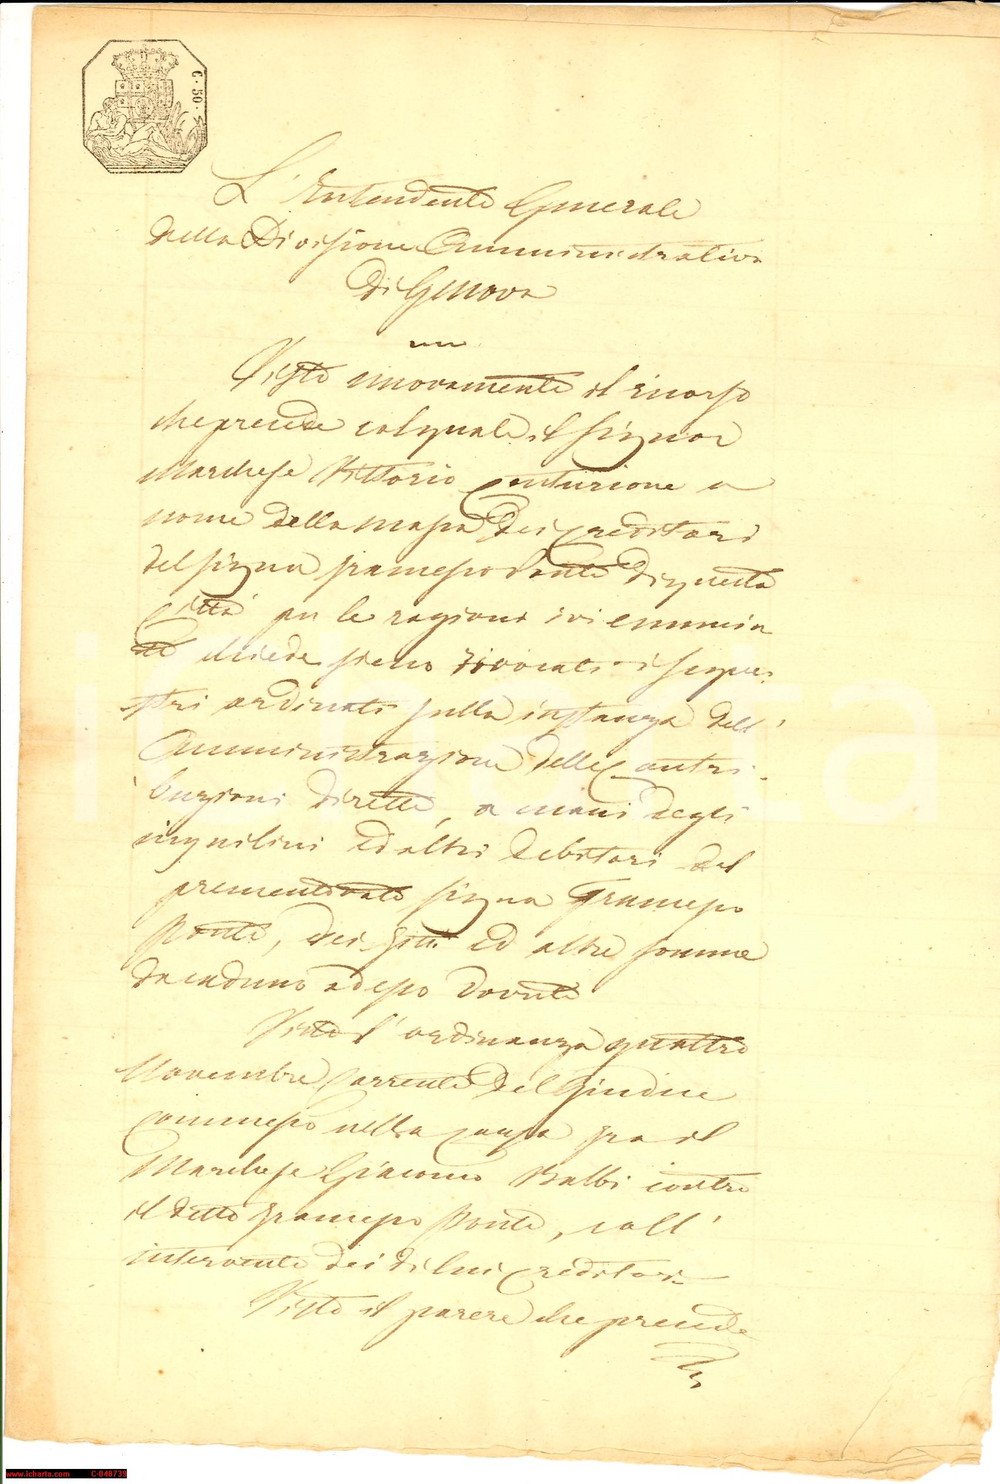 C. 50.
L'Intendente Generale
della Divisione Amministrativa
Di Genova
Visto nuovamente il ricorso
che precede col quale il signor
Marchese Vittorio Centurione a
nome della massa dei Creditori
del signor Francesco Ponte di questa
Città per le ragioni ivi enuncia
te chiede sieno rivocati i seque-
stri ordinati sulla instanza dell'
Amministrazione delle Contri-
buzioni dirette, a mani degli
inquilini ed altri debitori del
prementovato signor Francesco
Ponte, dei fitti ed altre somme
da caduno ad esso dovute
Vista l'ordinanza quattro
Novembre corrente del Giudice
commesso nella causa fra il
Marchese Giacomo Balbi contro
il detto Francesco Ponte, coll'
intervento dei di lui creditori
Visto il parere che precede
www.icharta.com C-040739
icharta